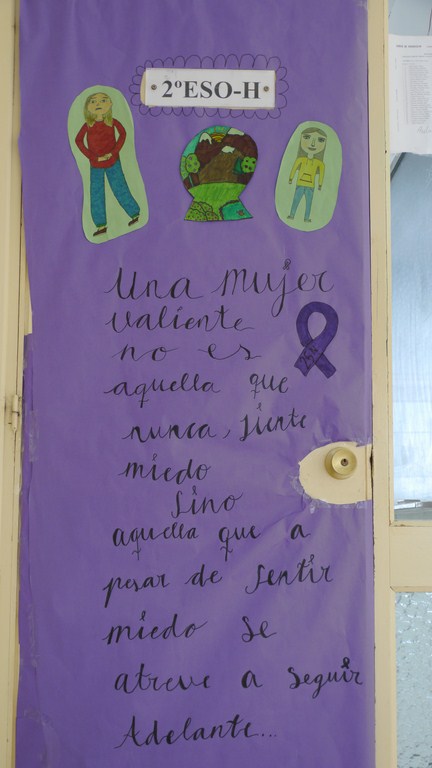 2ºESO-H
Una mujer
valiente
no es
aquella que
nunca, siente
miedo
sino
aquella que a
pesar de sentir
miedo se
atreve a seguir
Adelante...